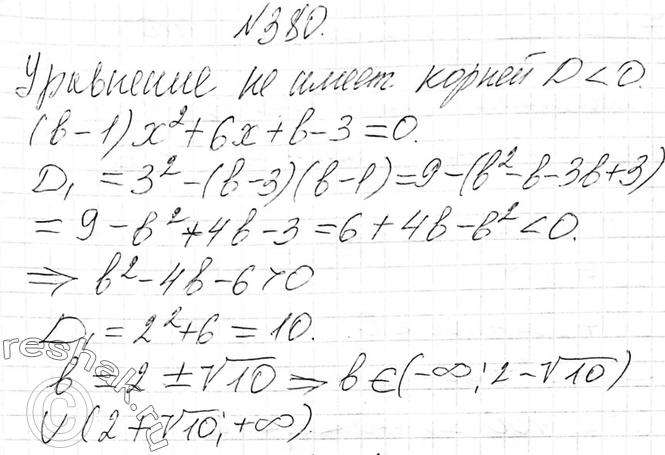 №380.
Уравнение не имеет корней D<0.
(b-1)x²+6x+b-3=0.
D₁=3²-(b-3)(b-1)=9-(b²-b-3b+3)
=9-b²+4b-3=6+4b-b²<0.
⇒ b²-4b-6>0
D₁=2²+6=10.
b=2±√10⇒b∈(-∞;2-√10)
∪(2+√10;+∞).
reshak.ru